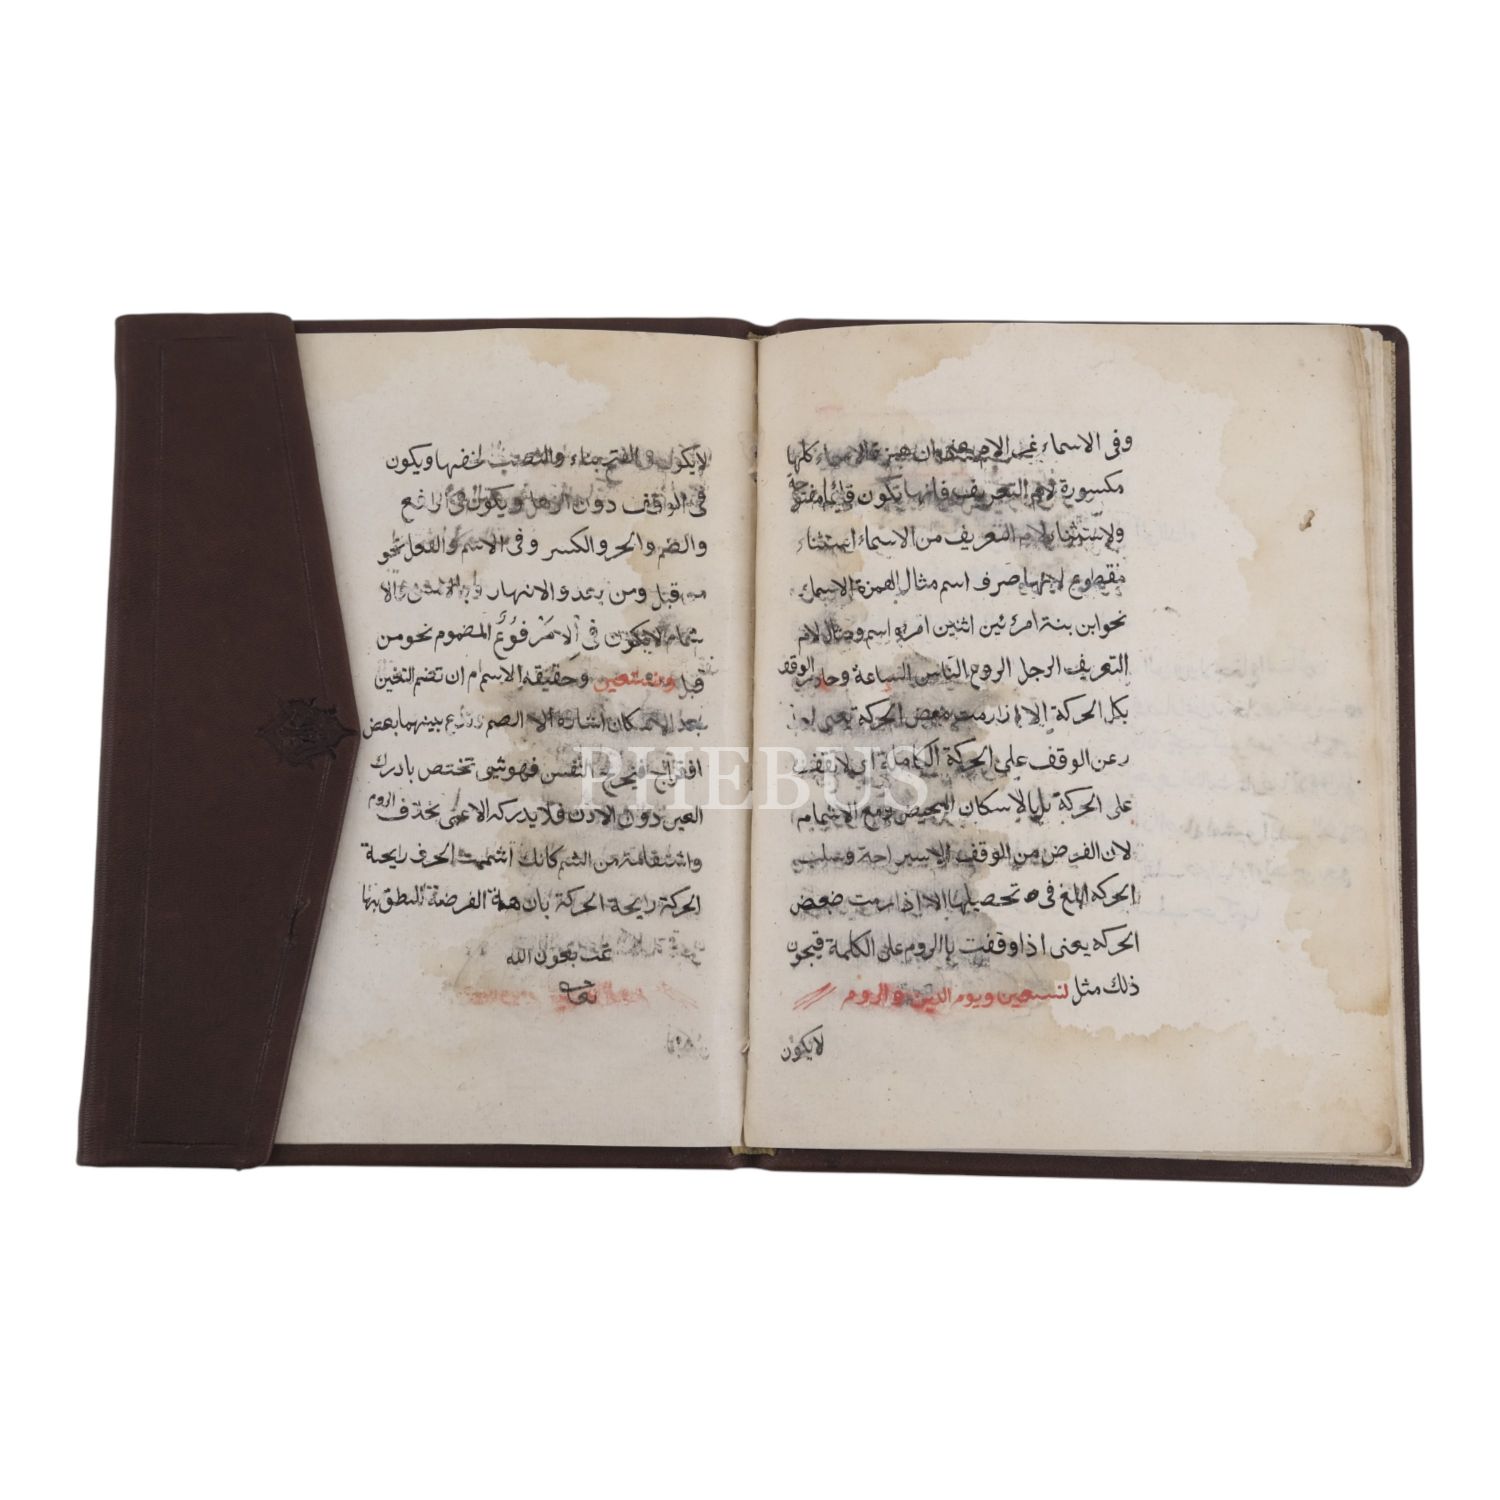 وفى الاسماء غير اللام يعنى ان همزة الاسماء كلها
مكسورة لام التعريف فانها تكون قائما مفتوحة
ولاستثناء لام التعريف من الاسماء استثناء
منقطع لانها حرف اسم مثال الهمزة الاسمك
نحو ابن بنة امرئين اثنين امرؤ اسم ومثال لام
التعريف الرجل الروح الناس الساعة وحاذر الوقف
بكل الحركة الا اذا رمت فبعض الحركة يعنى احذر
رعن الوقف على الحركة الكاملة اى لا تقف
على الحركة بل بالاسكان المحض ومع الاشمام
لان الغرض من الوقف الاستراحة وسلب
الحركه ابلغ فى تحصيلها الا اذا رمت فبعض
الحركه يعنى اذا وقفت بالروم على الكلمة فيجون
ذلك مثل لنستعين ويوم الدين والروم
لايكون
لايكون فى الفتح بناء والنصب لخفتها ويكون
فى الوقف دون الوصل ويكون فى الرافع
والضم والجر والكسر وفى الاسم والفعل نحو
من قبل ومن بعد والانهار
شمام لايكون فى الاسم فوع المضموم نحو من
قبل ونستعين وحقيقه الاسمام ان تضم الشفتين
بعد الاسكان اشارة الا الضم وتدع بينهما بعض
انفراج فيخرج النفس فهو شئ تختص بادرك
العين دون الاذن فلا يدركه الاعمى بخلاف الروم
واشتقاقه من الشم كانك اشممت الحرف رايحة
الحركة رايحة الحركة بان هيأة الفرضة للنطق بها
تمت بعون الله
تعا
PHEBUS